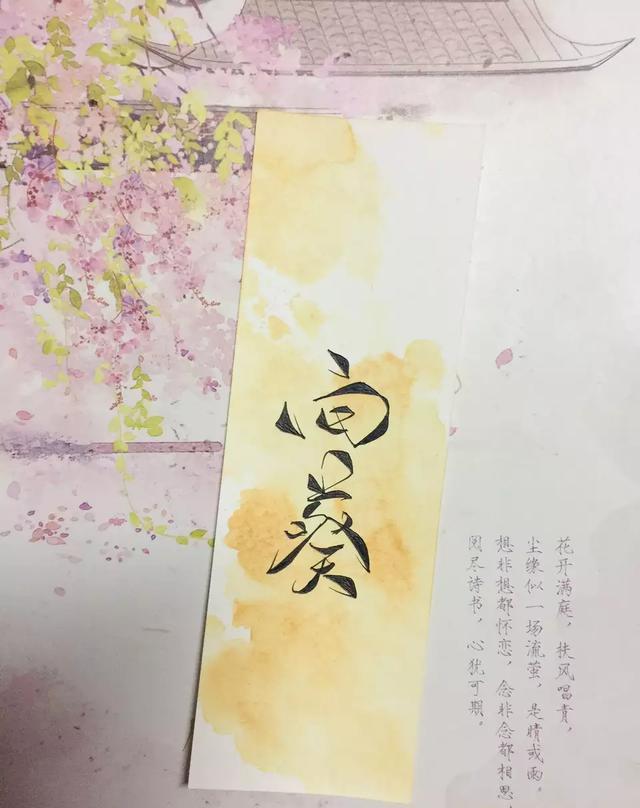 向葵
花开满庭，扶风唱，
尘缘似一场流萤，是晴或雨。
想非想都怀恋，念非念都相思
阅尽诗书，心犹可期。